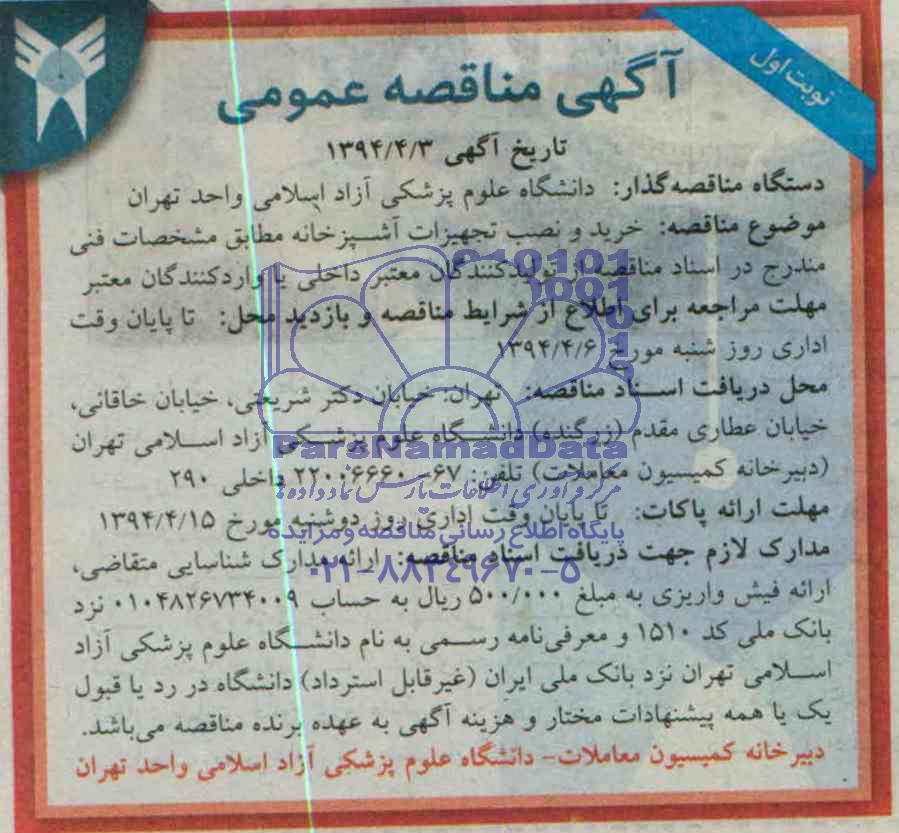 نوبت اول
آگهی مناقصه عمومی
تاریخ آگهی ۱۳۹۴/۴/۳
دستگاه مناقصه‌گذار: دانشگاه علوم پزشکی آزاد اسلامی واحد تهران
موضوع مناقصه: خرید و نصب تجهیزات آشپزخانه مطابق مشخصات فنی
مندرج در اسناد مناقصه از تولیدکنندگان معتبر داخلی یا واردکنندگان معتبر
مهلت مراجعه برای اطلاع از شرایط مناقصه و بازدید محل: تا پایان وقت
اداری روز شنبه مورخ ۱۳۹۴/۴/۶
محل دریافت اسناد مناقصه: تهران: خیابان دکتر شریعتی، خیابان خاقانی،
خیابان عطاری مقدم (زرگنده) دانشگاه علوم پزشکی آزاد اسلامی تهران
(دبیرخانه کمیسیون معاملات) تلفن: ۶۷-۲۲۰۰۶۶۶۰ داخلی ۲۹۰
مهلت ارائه پاکات: تا پایان وقت اداری روز دوشنبه مورخ ۱۳۹۴/۴/۱۵
مدارک لازم جهت دریافت اسناد مناقصه: ارائه مدارک شناسایی متقاضی،
ارائه فیش واریزی به مبلغ ۵۰۰/۰۰۰ ریال به حساب ۰۱۰۴۸۲۶۷۳۴۰۰۹ نزد
بانک ملی کد ۱۵۱۰ و معرفی‌نامه رسمی به نام دانشگاه علوم پزشکی آزاد
اسلامی تهران نزد بانک ملی ایران (غیرقابل استرداد) دانشگاه در رد یا قبول
یک یا همه پیشنهادات مختار و هزینه آگهی به عهده برنده مناقصه می‌باشد.
دبیرخانه کمیسیون معاملات- دانشگاه علوم پزشکی آزاد اسلامی واحد تهران
ParsNamadData
مرکز فرآوری اطلاعات پارس نماد داده ها
پایگاه اطلاع رسانی مناقصه و مزایده
۰۲۱-۸۸۳۴۹۶۷۰-۵